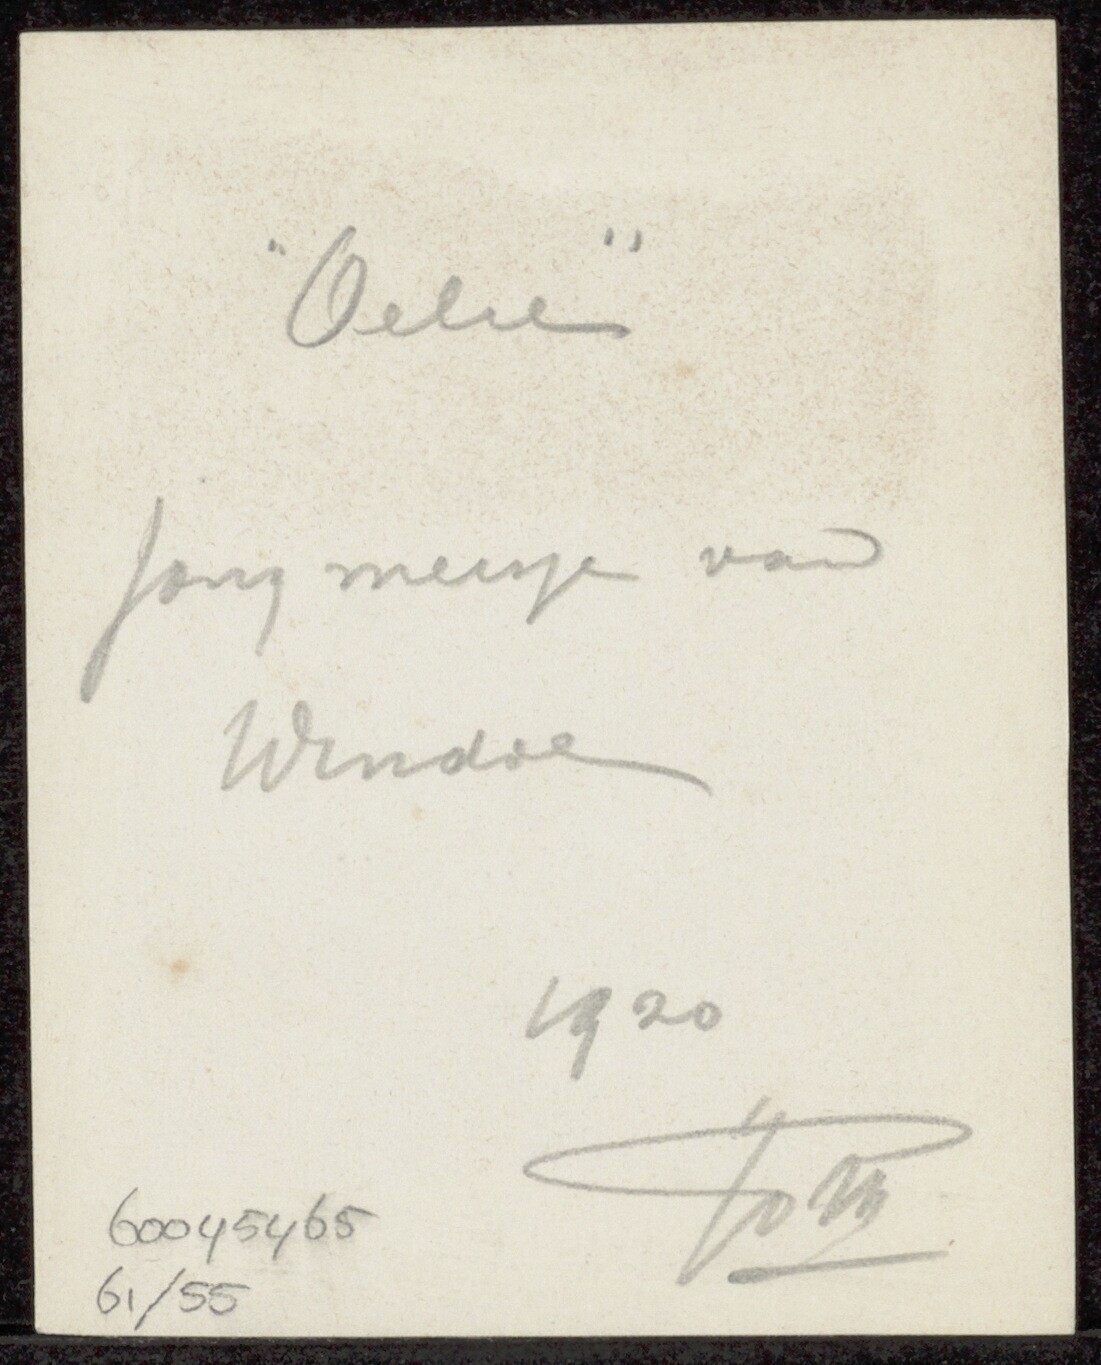 "Oelie"
jong meisje van
1920
60045465
61/55